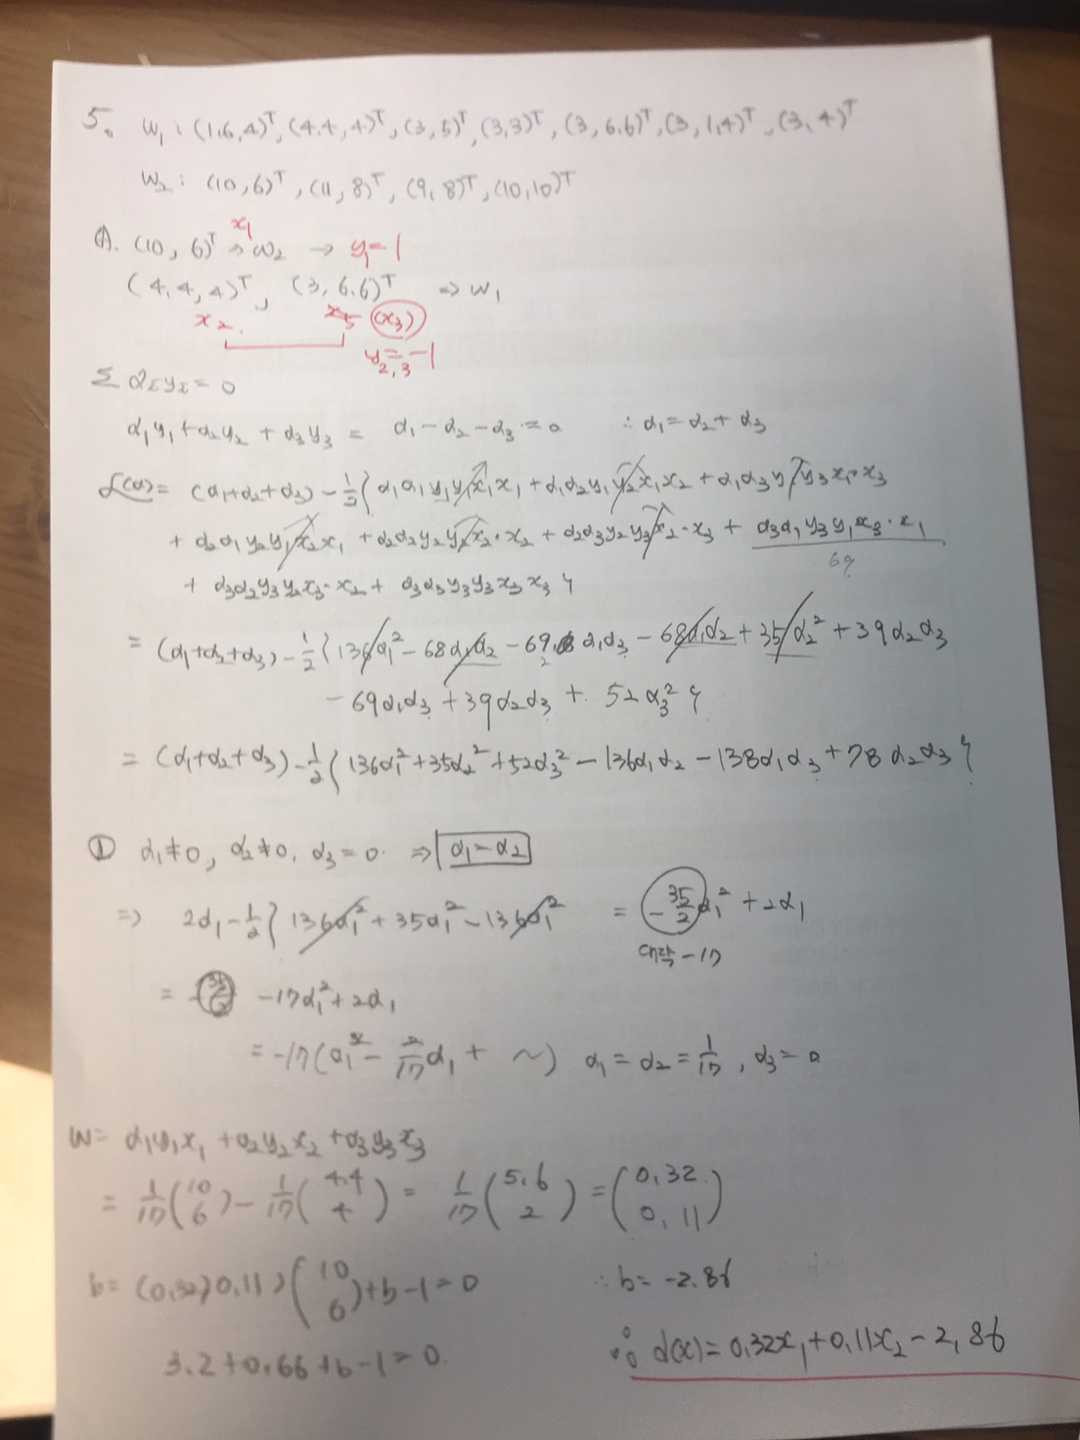 5. W₁ : (1,6,4)ᵀ, (4.4, 4)ᵀ, (3,5)ᵀ, (3,3)ᵀ, (3, 6.6)ᵀ, (3, 1.4)ᵀ, (3, 4)ᵀ
W₂ : (10,6)ᵀ, (11, 8)ᵀ, (9, 8)ᵀ, (10,10)ᵀ
x₁
A. (10, 6)ᵀ ⇒ W₂ → y₁=1
(4.4, 4)ᵀ, (3, 6.6)ᵀ ⇒ W₁
x₂. x₅ (x₃)
y₂,₃=-1
Σ αᵢyᵢ = 0
α₁y₁ + α₂y₂ + α₃y₃ = α₁ - α₂ - α₃ = 0 ∴ α₁ = α₂ + α₃
L(α) = (α₁+α₂+α₃) - 1/2 { α₁α₁y₁y₁x₁x₁ + α₁α₂y₁y₂x₁x₂ + α₁α₃y₁y₃x₁·x₃
+ α₂α₁y₂y₁x₂x₁ + α₂α₂y₂y₂x₂·x₂ + α₂α₃y₂y₃x₂·x₃ + α₃α₁y₃y₁x₃·x₁
69
+ α₃α₂y₃y₂x₃·x₂ + α₃α₃y₃y₃x₃x₃ }
= (α₁+α₂+α₃) - 1/2 { 136α₁² - 68α₁α₂ - 69 α₁α₃ - 68α₁α₂ + 35α₂² + 39α₂α₃
- 69α₁α₃ + 39α₂α₃ + 52α₃² }
= (α₁+α₂+α₃) - 1/2 { 136α₁² + 35α₂² + 52α₃² - 136α₁α₂ - 138α₁α₃ + 78α₂α₃ }
① α₁≠0, α₂≠0, α₃=0. ⇒ α₁=α₂
⇒ 2α₁ - 1/2 { 136α₁² + 35α₁² - 136α₁² = -35/2 α₁² + 2α₁
대략 -17
= -17α₁² + 2α₁
= -17(α₁² - 2/17 α₁ + ~) α₁ = α₂ = 1/17, α₃ = 0
W = α₁y₁x₁ + α₂y₂x₂ + α₃y₃x₃
= 1/17 (10 6) - 1/17 (4.4 4) = 1/17 (5.6 2) = (0.32 0.11)
b = (0.32, 0.11) (10 6) + b - 1 = 0 ∴ b = -2.86
3.2 + 0.66 + b - 1 = 0 ∴ d(x) = 0.32x₁ + 0.11x₂ - 2.86